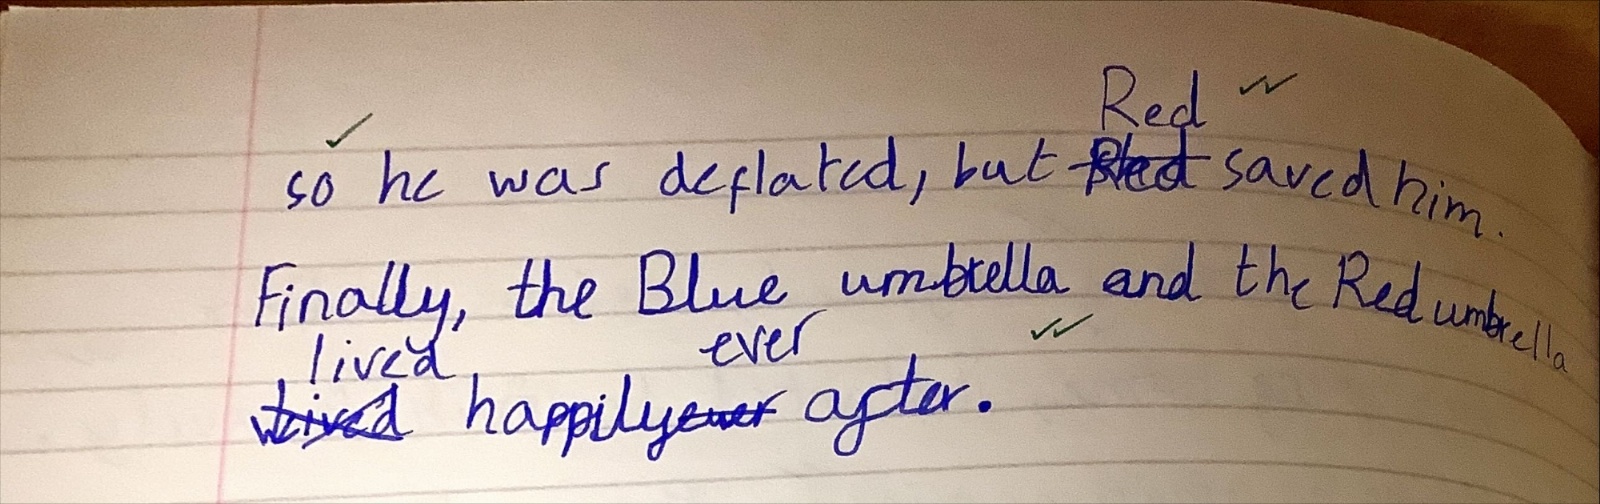 Red
so he was deflated, but saved him.
Finally, the Blue umbrella and the Red umbrella
lived ever
happily after.